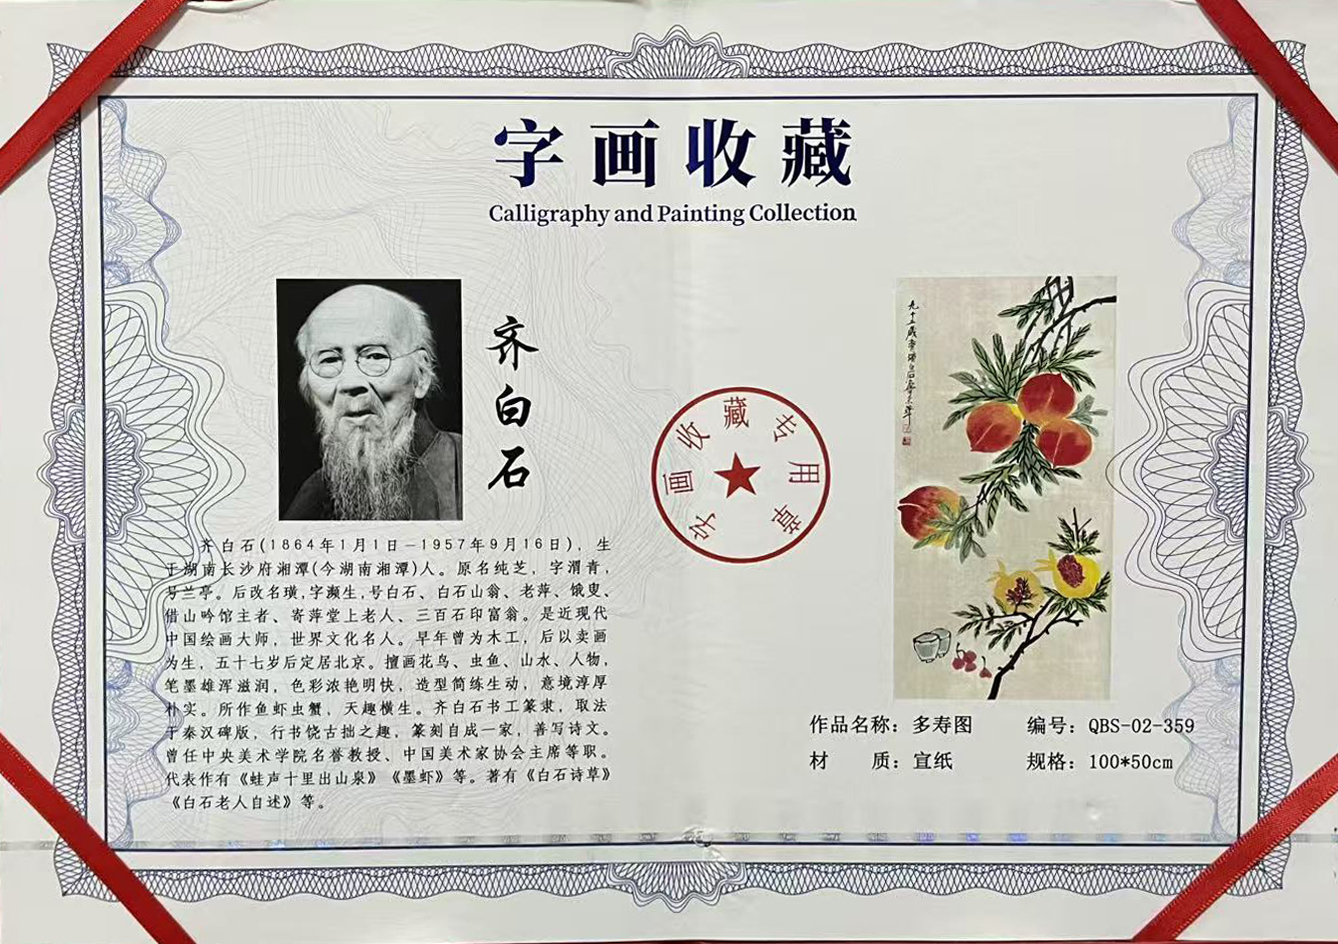 字画收藏
Calligraphy and Painting Collection
齐白石
字画收藏专用章
齐白石(1864年1月1日-1957年9月16日)，生
于湖南长沙府湘潭(今湖南湘潭)人。原名纯芝，字渭青，
号兰亭。后改名璜,字濒生,号白石、白石山翁、老萍、饿叟、
借山吟馆主者、寄萍堂上老人、三百石印富翁。是近现代
中国绘画大师，世界文化名人。早年曾为木工，后以卖画
为生，五十七岁后定居北京。擅画花鸟、虫鱼、山水、人物，
笔墨雄浑滋润，色彩浓艳明快，造型简练生动，意境淳厚
朴实。所作鱼虾虫蟹，天趣横生。齐白石书工篆隶，取法
于秦汉碑版，行书饶古拙之趣，篆刻自成一家，善写诗文。
曾任中央美术学院名誉教授、中国美术家协会主席等职。
代表作有《蛙声十里出山泉》《墨虾》等。著有《白石诗草》
《白石老人自述》等。
九十五岁
白石
作品名称：多寿图
编号：QBS-02-359
材 质：宣纸
规格：100*50cm